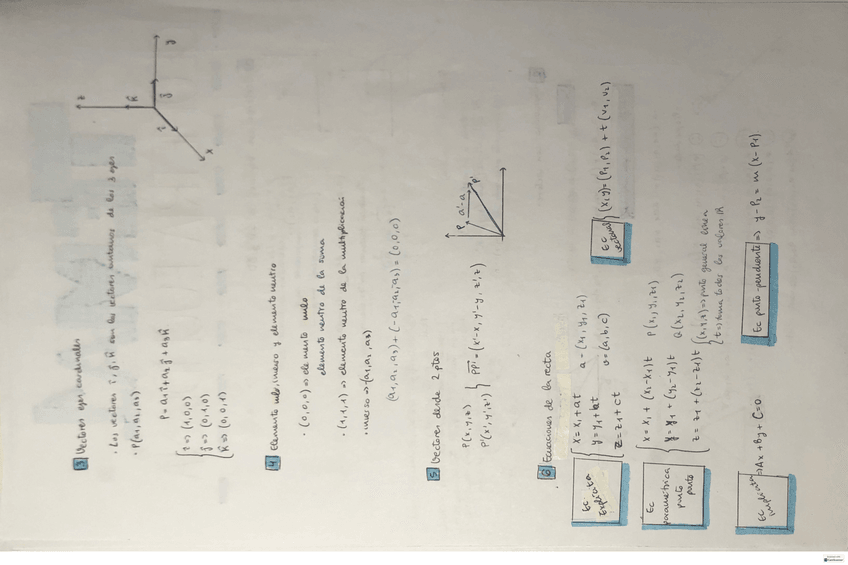 3 Vectores ejes cardinales
· Los vectores i, j, k son los vectores unitarios de los 3 ejes
· P(a1, a2, a3)
P = a1 i + a2 j + a3 k
i => (1,0,0)
j => (0,1,0)
k => (0,0,1)
z
k
j
y
i
x
4 Elemento nulo, inverso y elemento neutro
· (0,0,0) => elemento nulo
elemento neutro de la suma
· (1,1,1) => elemento neutro de la
· inverso => (a1, a2, a3)
(a1, a2, a3) + (-a1, -a2, -a3) = (0,0,0)
5 Vectores desde 2 ptos
P(x, y, z)
P'(x', y', z')
PP' = (x'-x, y'-y, z'-z)
P
a'-a
P'
6 Ecuaciones de la recta
Ec Explícita
x = x1 + at
y = y1 + bt
z = z1 + ct
a = (x1, y1, z1)
v = (a, b, c)
Ec vectorial
(x,y) = (P1, P2) + t (v1, v2)
Ec paramétrica punto punto
x = x1 + (x2-x1)t
y = y1 + (y2-y1)t
z = z1 + (z2-z1)t
P(x1, y1, z1)
Q(x2, y2, z2)
(x,y,z) => punto general
t => toma todos los valores R
Ec implícita => Ax + By + C = 0
Ec punto-pendiente => y - P2 = m (x - P1)